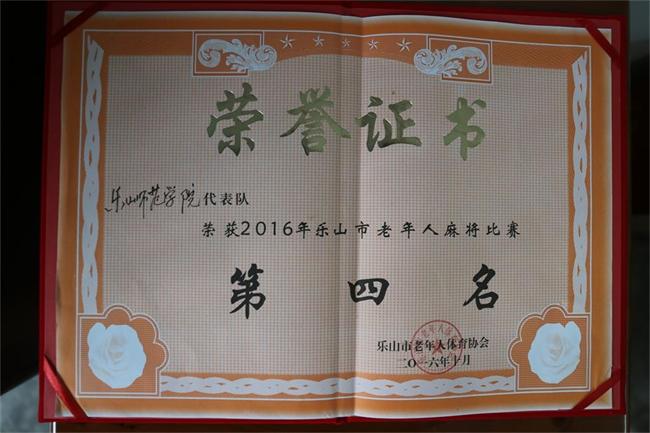 荣誉证书
乐山师范学院代表队
荣获2016年乐山市老年人麻将比赛
第四名
乐山市老年人体育协会
二〇一六年十月